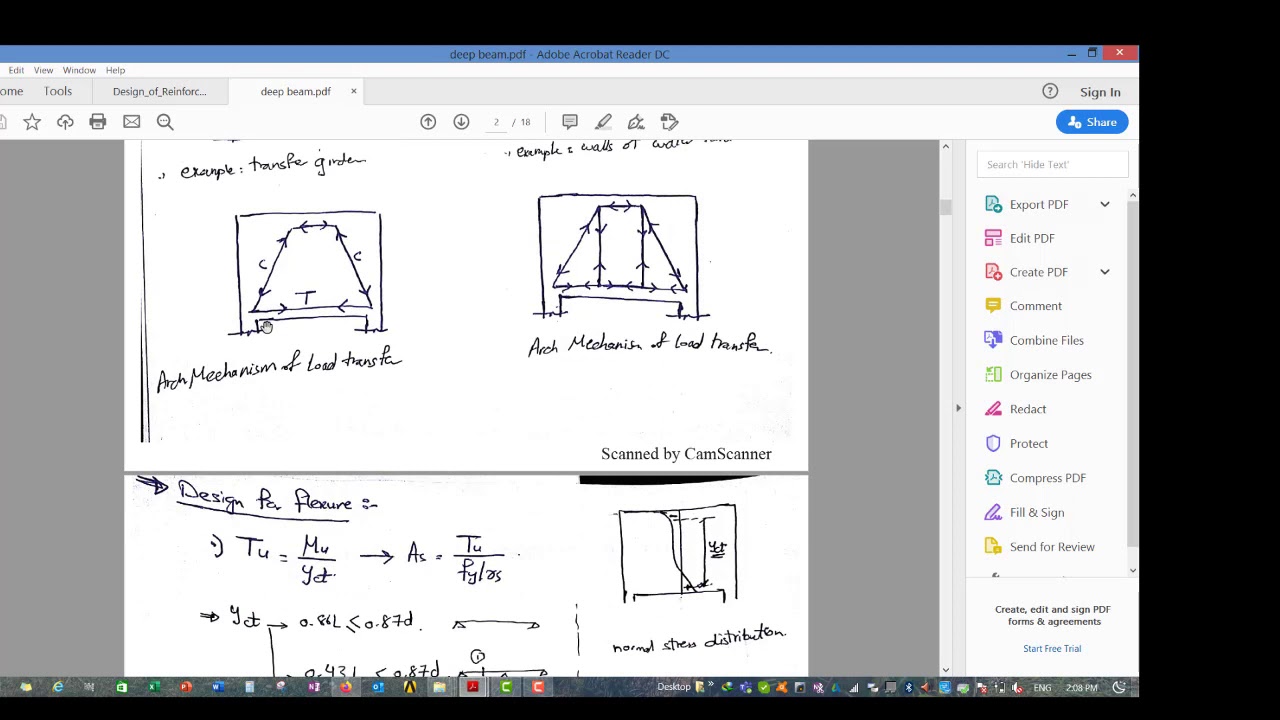 deep beam.pdf - Adobe Acrobat Reader DC
Edit View Window Help
ome Tools Design_of_Reinforc... deep beam.pdf × Sign In
2 / 18 Share
example: transfer girder
example: walls of water
C C
T
Arch Mechanism of Load transfer
Arch Mechanism of Load transfer.
Scanned by CamScanner
⇒ Design for flexure :-
•) Tu = Mu / yct → As = Tu / fy/γs
yct
⇒ yct → 0.86L ≤ 0.87d.
normal stress distribution.
0.43L ≤ 0.87d ①
Search 'Hide Text'
Export PDF
Edit PDF
Create PDF
Comment
Combine Files
Organize Pages
Redact
Protect
Compress PDF
Fill & Sign
Send for Review
Create, edit and sign PDF
forms & agreements
Start Free Trial
Desktop » ENG 2:08 PM